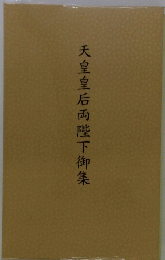 天皇皇后両陛下御集